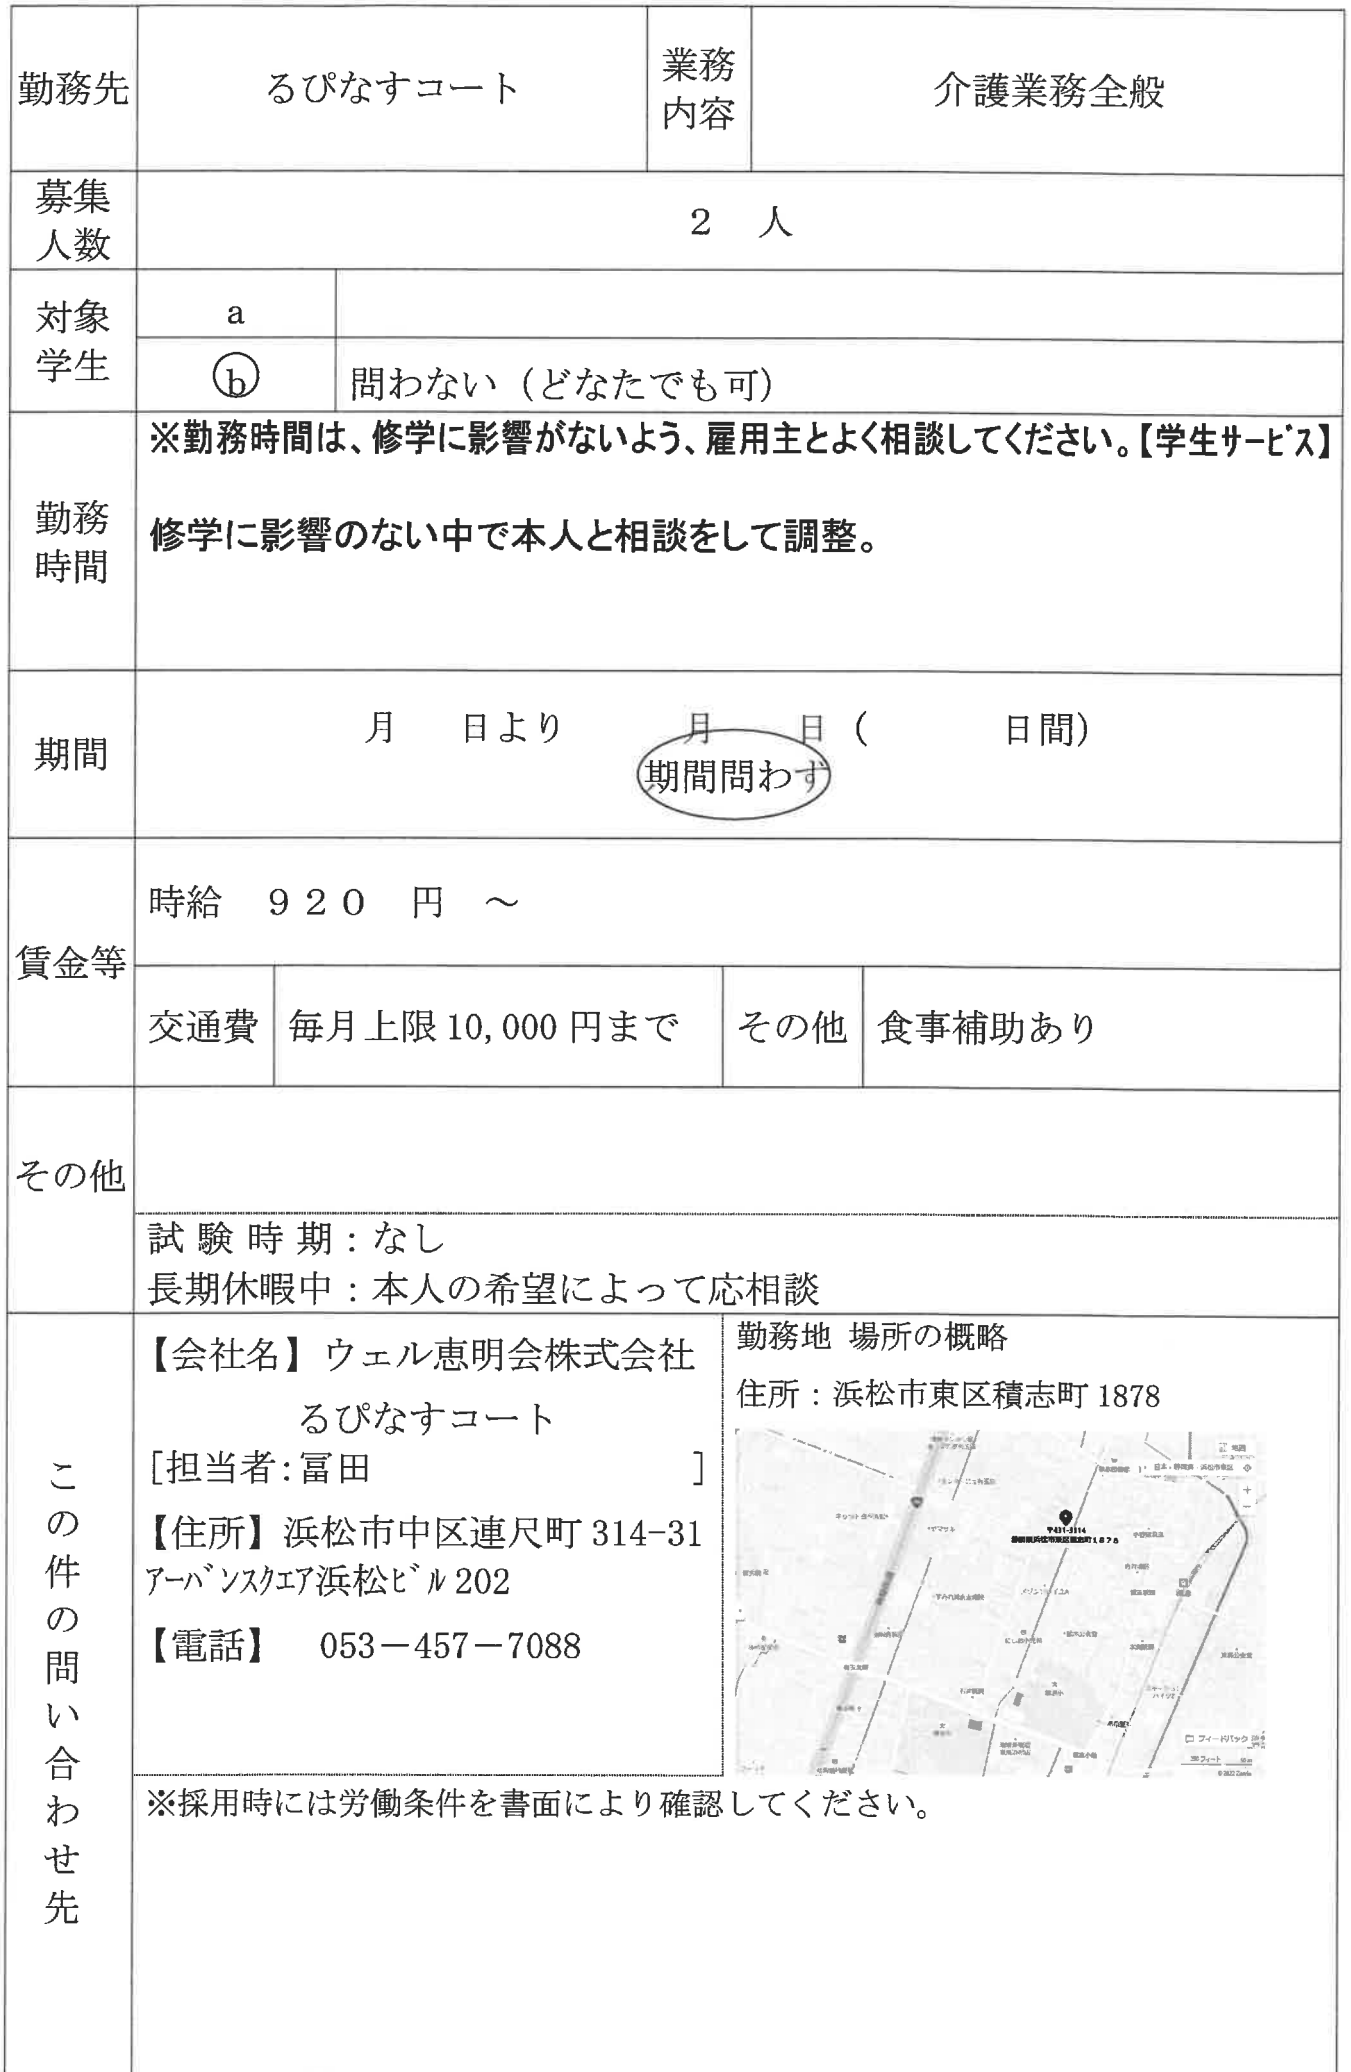 勤務先
るぴなすコート
業務
内容
介護業務全般
募集
人数
２　人
対象
学生
a
b
問わない（どなたでも可）
勤務
時間
※勤務時間は、修学に影響がないよう、雇用主とよく相談してください。【学生ｻｰﾋﾞｽ】
修学に影響のない中で本人と相談をして調整。
期間
月　日より　　月　日（　　　日間）
期間問わず
賃金等
時給　９２０　円　～
交通費
毎月上限 10,000 円まで
その他
食事補助あり
その他
試験時期：なし
長期休暇中：本人の希望によって応相談
この件の問い合わせ先
【会社名】ウェル恵明会株式会社
るぴなすコート
［担当者：冨田　　　　　］
【住所】浜松市中区連尺町 314-31
ｱｰﾊﾞﾝｽｸｴｱ浜松ﾋﾞﾙ 202
【電話】　053－457－7088
勤務地 場所の概略
住所：浜松市東区積志町 1878
地図
日本・静岡県・浜松市東区
〒431-3114
静岡県浜松市東区積志町１８７８
フィードバック
※採用時には労働条件を書面により確認してください。